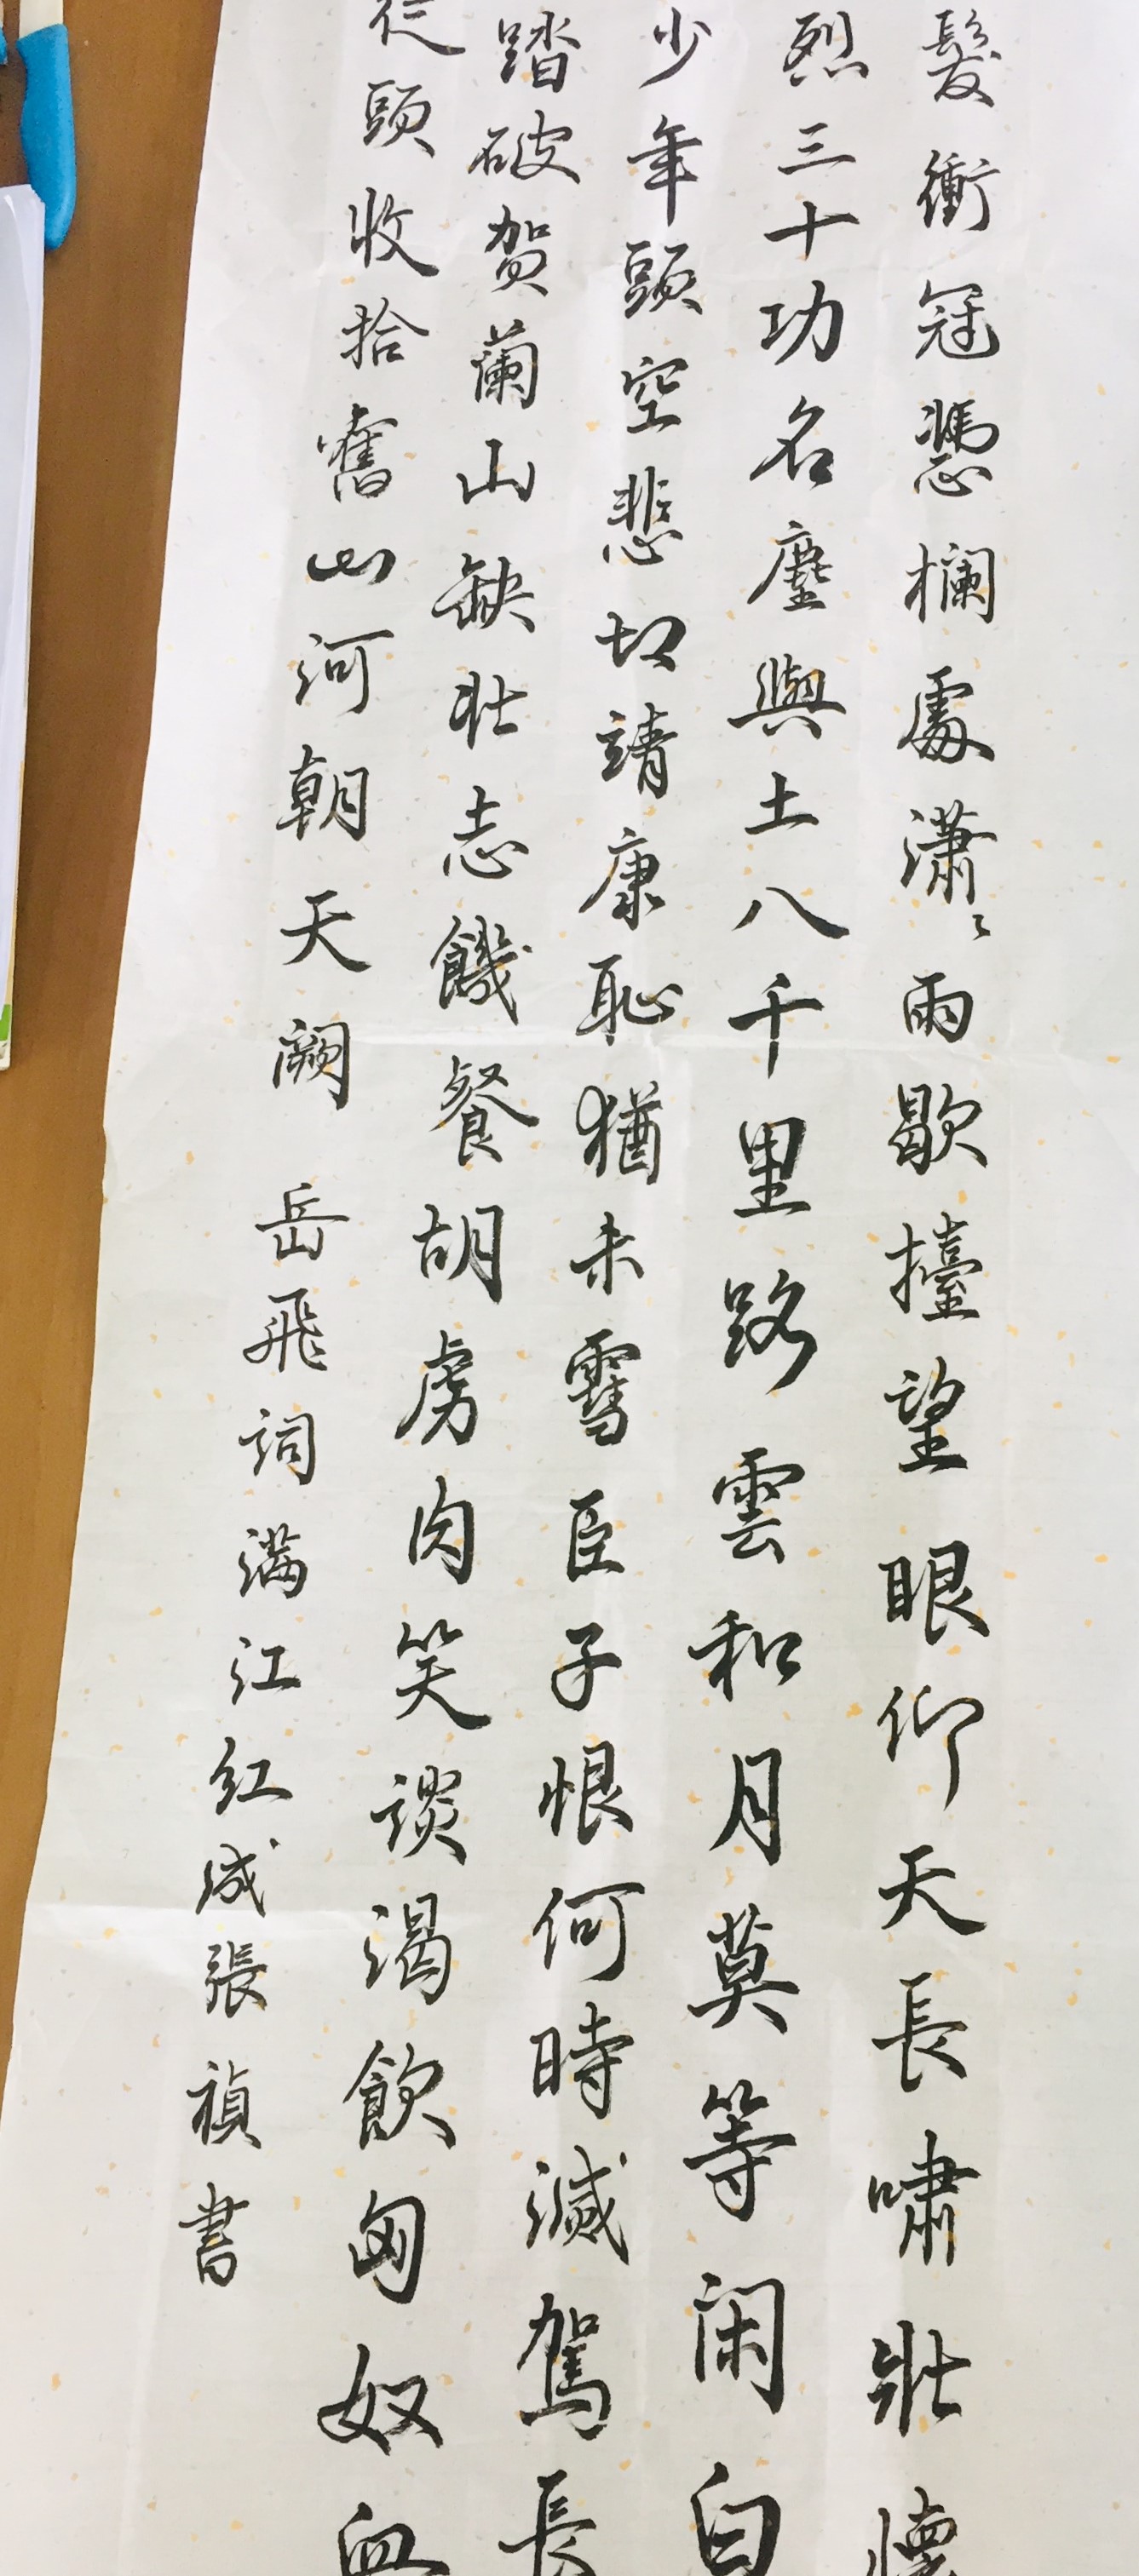 髮衝冠憑欄處瀟〻雨歇擡望眼仰天長嘯壯懷
烈三十功名塵與土八千里路雲和月莫等闲白
少年頭空悲切靖康恥猶未雪臣子恨何時滅駕長
踏破贺蘭山缺壯志饑餐胡虜肉笑談渴飲匈奴血
從頭收拾舊山河朝天阙 岳飛詞满江红 張禎書